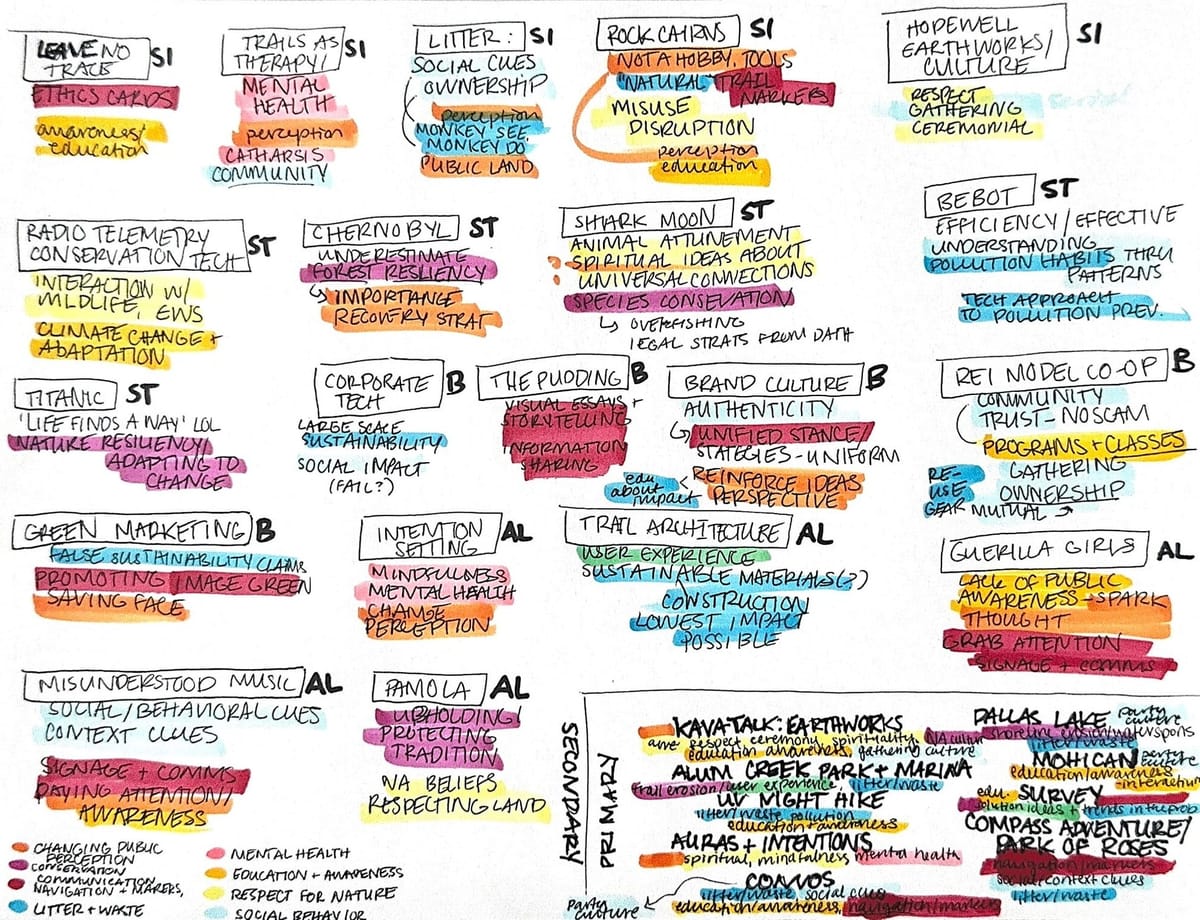 LEAVE NO TRACE SI
ETHICS CARDS
awareness/
education
TRAILS AS THERAPY/ SI
MENTAL
HEALTH
perception
CATHARSIS
COMMUNITY
LITTER: SI
SOCIAL CUES
OWNERSHIP
perception
MONKEY SEE,
MONKEY DO
PUBLIC LAND
ROCK CAIRNS SI
NOT A HOBBY, TOOLS
"NATURAL" TRAIL
MARKERS
MISUSE
DISRUPTION
perception
education
HOPEWELL
EARTHWORKS/
CULTURE SI
RESPECT
GATHERING
CEREMONIAL
RADIO TELEMETRY
CONSERVATION TECH ST
INTERACTION W/
WILDLIFE, EWS
CLIMATE CHANGE +
ADAPTATION
CHERNOBYL ST
UNDERESTIMATE
FOREST RESILIENCY
IMPORTANCE
RECOVERY STRAT
SHARK MOON ST
ANIMAL ATTUNEMENT
SPIRITUAL IDEAS ABOUT
UNIVERSAL CONNECTIONS
SPECIES CONSEVATION
OVERFISHING
LEGAL STRATS FROM DATA
BEBOT ST
EFFICIENCY/EFFECTIVE
UNDERSTANDING
POLLUTION HABITS THRU
PATTERNS
TECH APPROACH
TO POLLUTION PREV.
TITANIC ST
'LIFE FINDS A WAY' LOL
NATURE RESILIENCY/
ADAPTING TO
CHANGE
CORPORATE
TECH B
LARGE SCALE
SUSTAINABILITY
SOCIAL IMPACT
(FAIL?)
THE PUDDING B
VISUAL ESSAYS +
STORYTELLING
INFORMATION
SHARING
BRAND CULTURE B
AUTHENTICITY
UNIFIED STANCE/
STATEGIES - UNIFORM
REINFORCE IDEAS
PERSPECTIVE
edu
about
impact
REI MODEL CO-OP B
COMMUNITY
TRUST - NO SCAM
PROGRAMS + CLASSES
GATHERING
OWNERSHIP
RE-
USE
GEAR MUTUAL
GREEN MARKETING B
FALSE SUSTAINABILITY CLAIMS
PROMOTING IMAGE GREEN
SAVING FACE
INTENTION
SETTING AL
MINDFULNESS
MENTAL HEALTH
CHANGE
PERCEPTION
TRAIL ARCHITECTURE AL
USER EXPERIENCE
SUSTAINABLE MATERIALS(?)
CONSTRUCTION
LOWEST IMPACT
POSSIBLE
GUERILLA GIRLS AL
LACK OF PUBLIC
AWARENESS → SPARK
THOUGHT
GRAB ATTENTION
SIGNAGE + COMMS
MISUNDERSTOOD MUSIC AL
SOCIAL/BEHAVIORAL CUES
CONTEXT CLUES
SIGNAGE + COMMS
PAYING ATTENTION/
AWARENESS
PAMOLA AL
UPHOLDING/
PROTECTING
TRADITION
NA BELIEFS
RESPECTING LAND
SECONDARY
PRIMARY
KAVA-TALK: EARTHWORKS
respect ceremony, spirituality, NA culture
education awareness, gathering culture
ALUM CREEK PARK + MARINA
trail erosion/user experience, litter/waste
UV NIGHT HIKE
litter/waste pollution
education + awareness
AURAS + INTENTIONS
spiritual, mindfulness mental health
CONVOS
litter/waste, social cues
party
culture
education/awareness, navigation/markers
DALLAS LAKE party
culture
shoreline erosion/watersports
litter/waste
MOHICAN party
culture
education/awareness
interaction
edu. SURVEY
solution ideas + trends in the prob
COMPASS ADVENTURE/
PARK OF ROSES
navigation/markers
social/context clues
litter/waste
CHANGING PUBLIC
PERCEPTION
CONSERVATION
COMMUNICATION
NAVIGATION + MARKERS,
LITTER + WASTE
MENTAL HEALTH
EDUCATION + AWARENESS
RESPECT FOR NATURE
SOCIAL BEHAVIOR